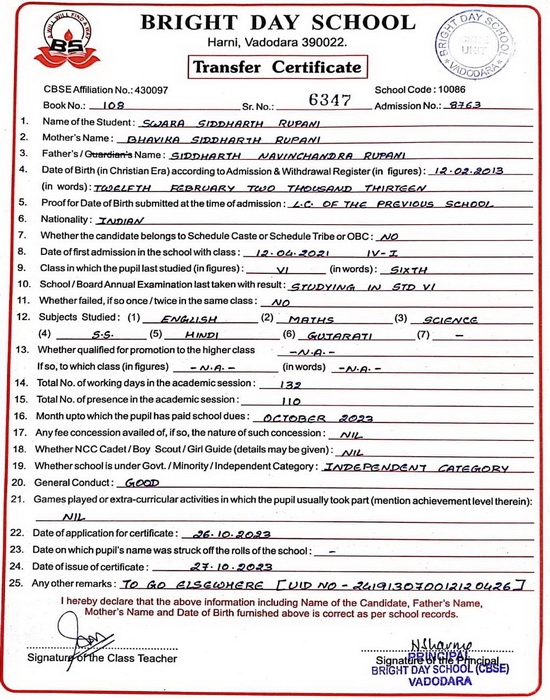 A WILL WILL FIND A WAY
BS
BRIGHT DAY SCHOOL
Harni, Vadodara 390022.
Transfer Certificate
BRIGHT DAY SCHOOL
UNIT
VADODARA
CBSE Affiliation No.: 430097 School Code : 10086
Book No.: 108 Sr. No.: 6347 Admission No.: 8763
1. Name of the Student : SWARA SIDDHARTH RUPANI
2. Mother's Name : BHAVIKA SIDDHARTH RUPANI
3. Father's / Guardian's Name : SIDDHARTH NAVINCHANDRA RUPANI
4. Date of Birth (in Christian Era) according to Admission & Withdrawal Register (in figures) : 12.02.2013
(in words) : TWELFTH FEBRUARY TWO THOUSAND THIRTEEN
5. Proof for Date of Birth submitted at the time of admission : L.C. OF THE PREVIOUS SCHOOL
6. Nationality : INDIAN
7. Whether the candidate belongs to Schedule Caste or Schedule Tribe or OBC : NO
8. Date of first admission in the school with class : 12.04.2021 IV-I
9. Class in which the pupil last studied (in figures) : VI (in words) : SIXTH
10. School / Board Annual Examination last taken with result : STUDYING IN STD VI
11. Whether failed, if so once / twice in the same class : NO
12. Subjects Studied : (1) ENGLISH (2) MATHS (3) SCIENCE
(4) S.S. (5) HINDI (6) GUJARATI (7) –
13. Whether qualified for promotion to the higher class –N.A.–
If so, to which class (in figures) –N.A.– (in words) –N.A.–
14. Total No. of working days in the academic session : 132
15. Total No. of presence in the academic session : 110
16. Month upto which the pupil has paid school dues : OCTOBER 2023
17. Any fee concession availed of, if so, the nature of such concession : NIL
18. Whether NCC Cadet / Boy Scout / Girl Guide (details may be given) : NIL
19. Whether school is under Govt. / Minority / Independent Category : INDEPENDENT CATEGORY
20. General Conduct : GOOD
21. Games played or extra-curricular activities in which the pupil usually took part (mention achievement level therein) :
NIL
22. Date of application for certificate : 26.10.2023
23. Date on which pupil's name was struck off the rolls of the school : –
24. Date of issue of certificate : 27.10.2023
25. Any other remarks : TO GO ELSEWHERE [UID NO - 241913070012120426]
I hereby declare that the above information including Name of the Candidate, Father's Name,
Mother's Name and Date of Birth furnished above is correct as per school records.
NSharma
Signature of the Class Teacher Signature of the Principal
PRINCIPAL
BRIGHT DAY SCHOOL (CBSE)
VADODARA